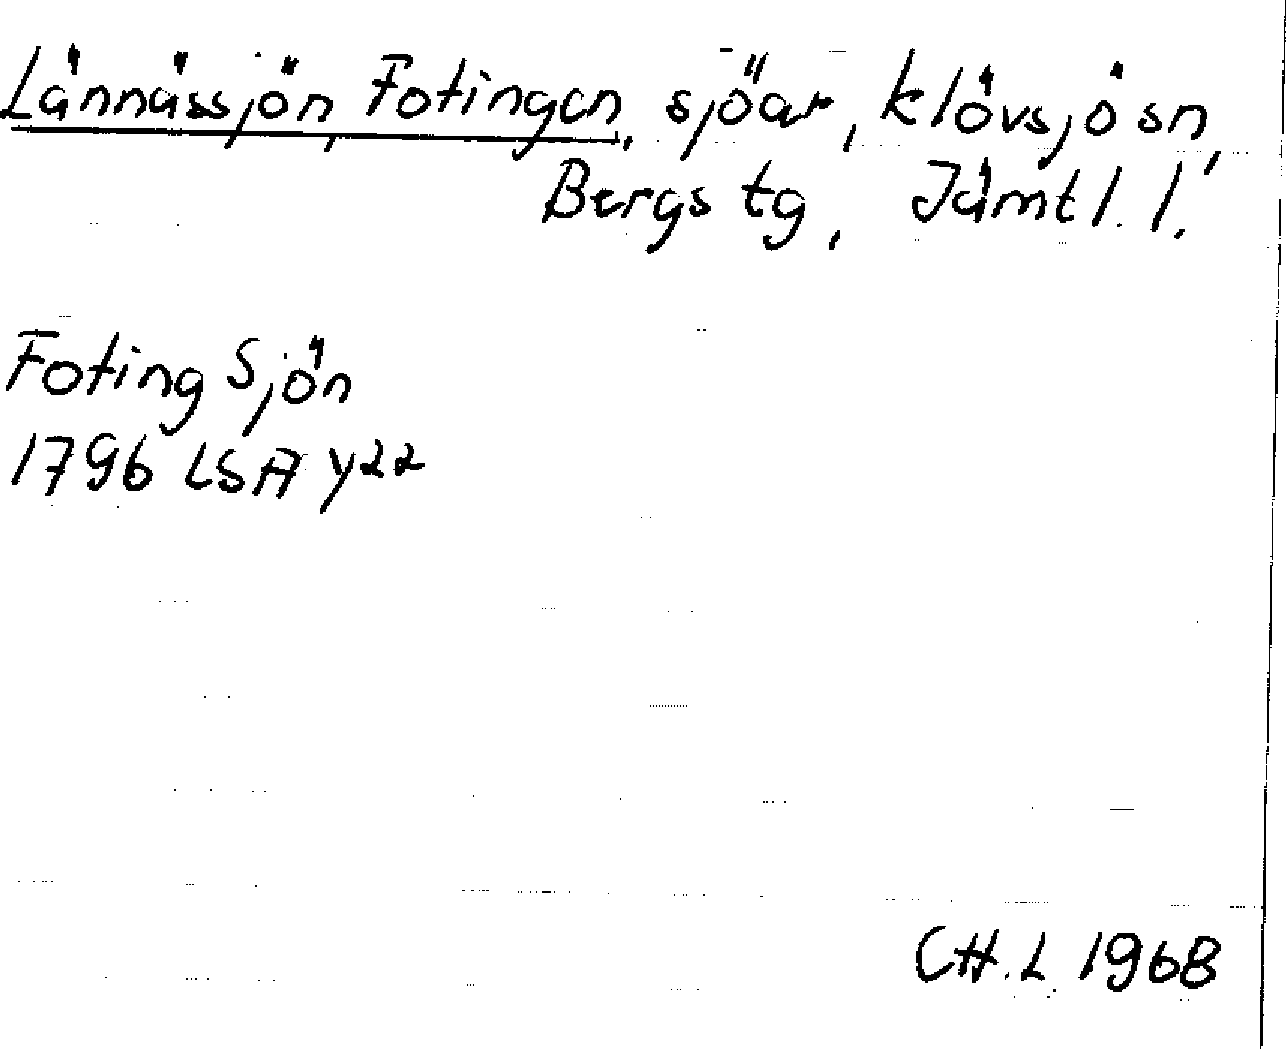 Lännässjön, Fotingen, sjöar, Klövsjö sn,
Bergs tg, Jämtl. l.
Foting Sjön
1796 LSA Y22
CH.L 1968